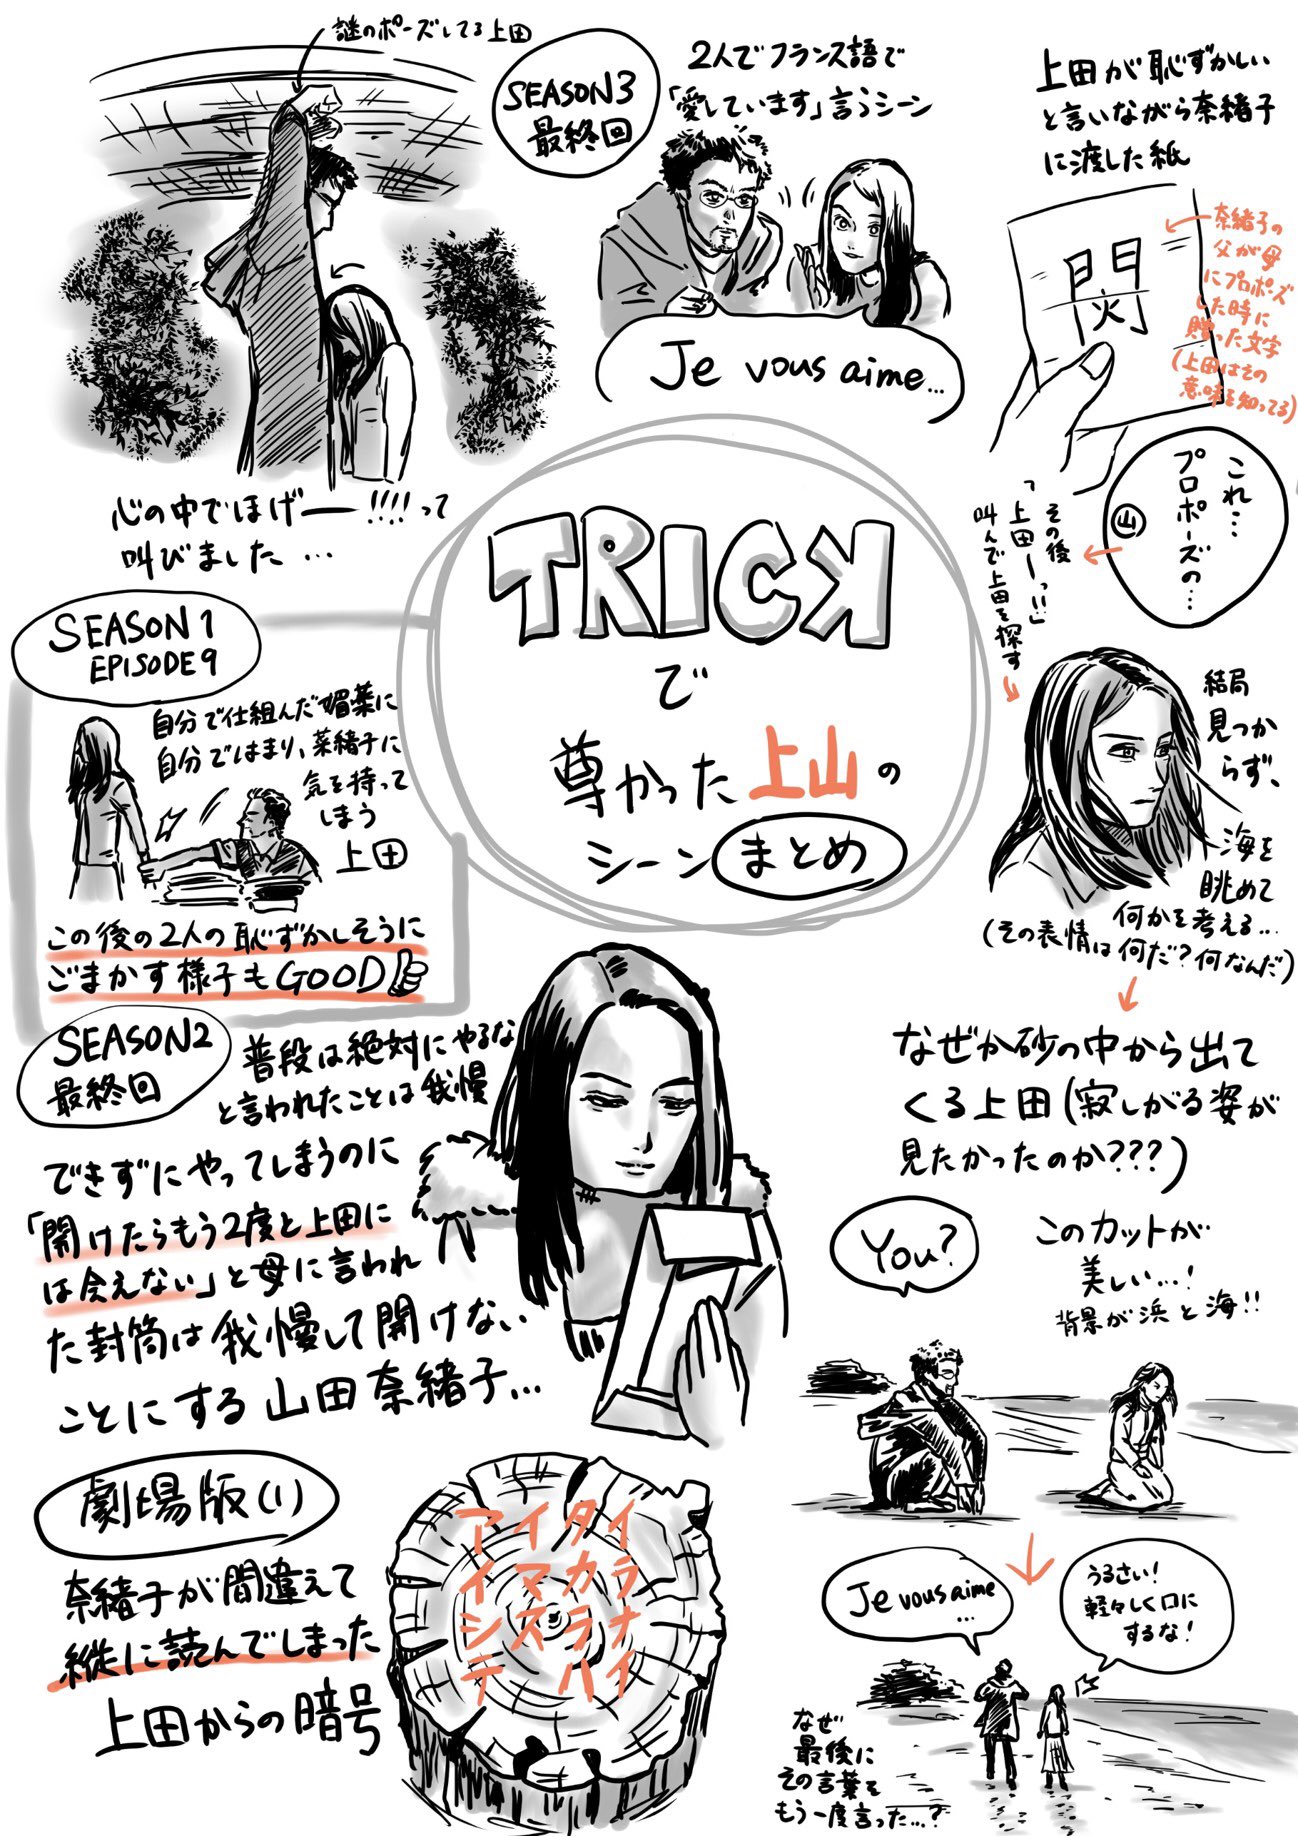 謎のポーズしてる上田
心の中でほげー!!!!って
叫びました…
SEASON3
最終回
2人でフランス語で
「愛しています」言うシーン
Je vous aime…
上田が恥ずかしい
と言いながら奈緒子
に渡した紙
閃
奈緒子の
父が母
にプロポーズ
した時に
贈った文字
(上田はその
意味を知ってる)
これ…
プロポーズの…
山
その後
「上田ーっ!!」
叫んで上田を探す
結局
見つか
らず、
海を
眺めて
何かを考える…
(その表情は何だ?何なんだ)
なぜか砂の中から出て
くる上田(寂しがる姿が
見たかったのか???)
You?
このカットが
美しい…!
背景が浜と海!!
Je vous aime
…
うるさい!
軽々しく口に
するな!
なぜ
最後に
その言葉を
もう一度言った…?
TRICK
で
尊かった上山の
シーンまとめ
SEASON1
EPISODE9
自分で仕組んだ媚薬に
自分ではまり、菜緒子に
気を持って
しまう
上田
この後の2人の恥ずかしそうに
ごまかす様子もGOOD
SEASON2
最終回
普段は絶対にやるな
と言われたことは我慢
できずにやってしまうのに
「開けたらもう2度と上田に
は会えない」と母に言われ
た封筒は我慢して開けない
ことにする山田奈緒子…
劇場版(1)
奈緒子が間違えて
縦に読んでしまった
上田からの暗号
アイタイ
イマカラ
シスラナ
テ ハイ